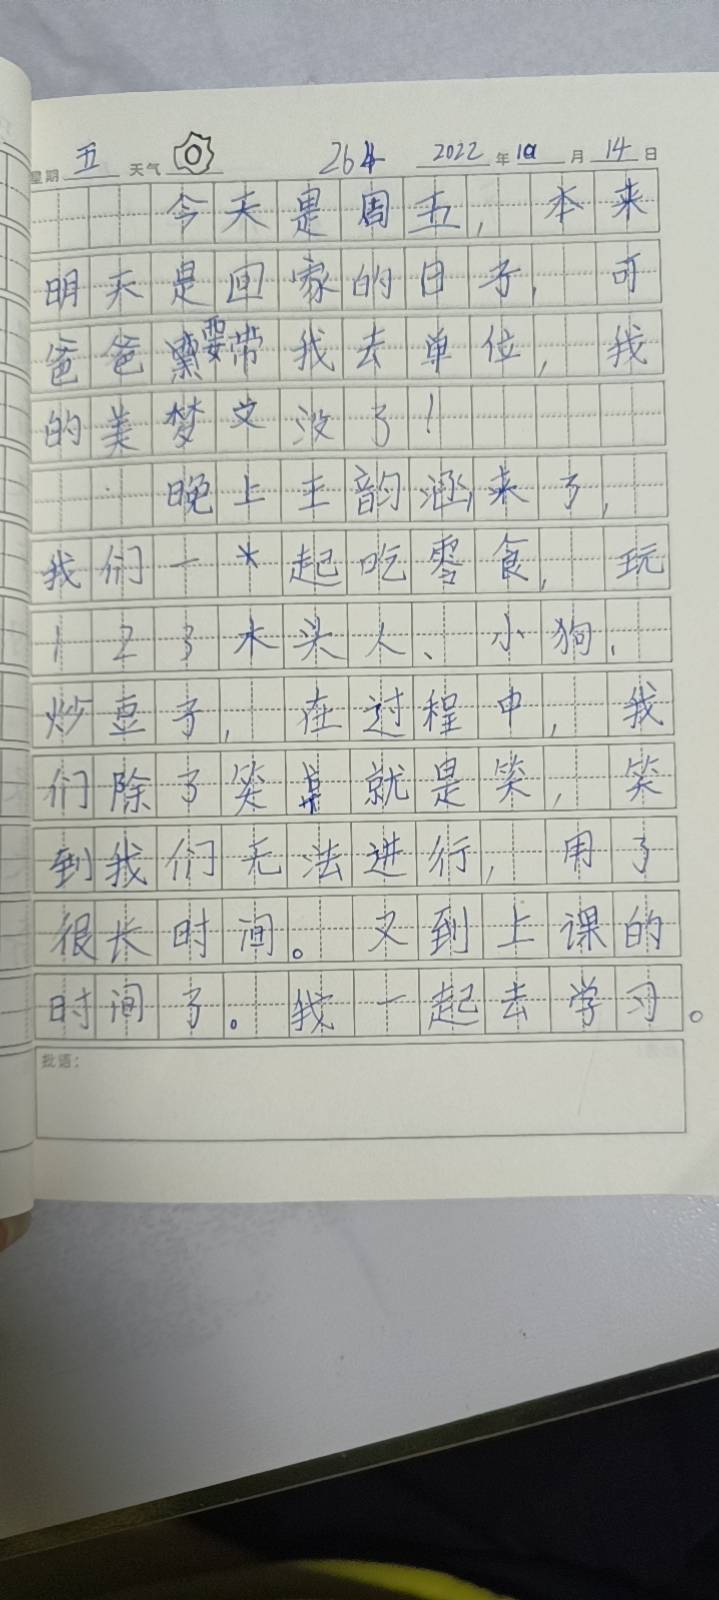 星期 五 天气 264 2022 年 10 月 14 日
今天是周五,本来
明天是回家的日子,可
爸爸要带我去单位,我
的美梦又没了!
晚上王韵涵来了,
我们一起吃零食,玩
123木头人、小狗、
炒豆子,在过程中,我
们除了笑就是笑,笑
到我们无法进行,用了
很长时间。又到上课的
时间了。我一起去学习。
批语: